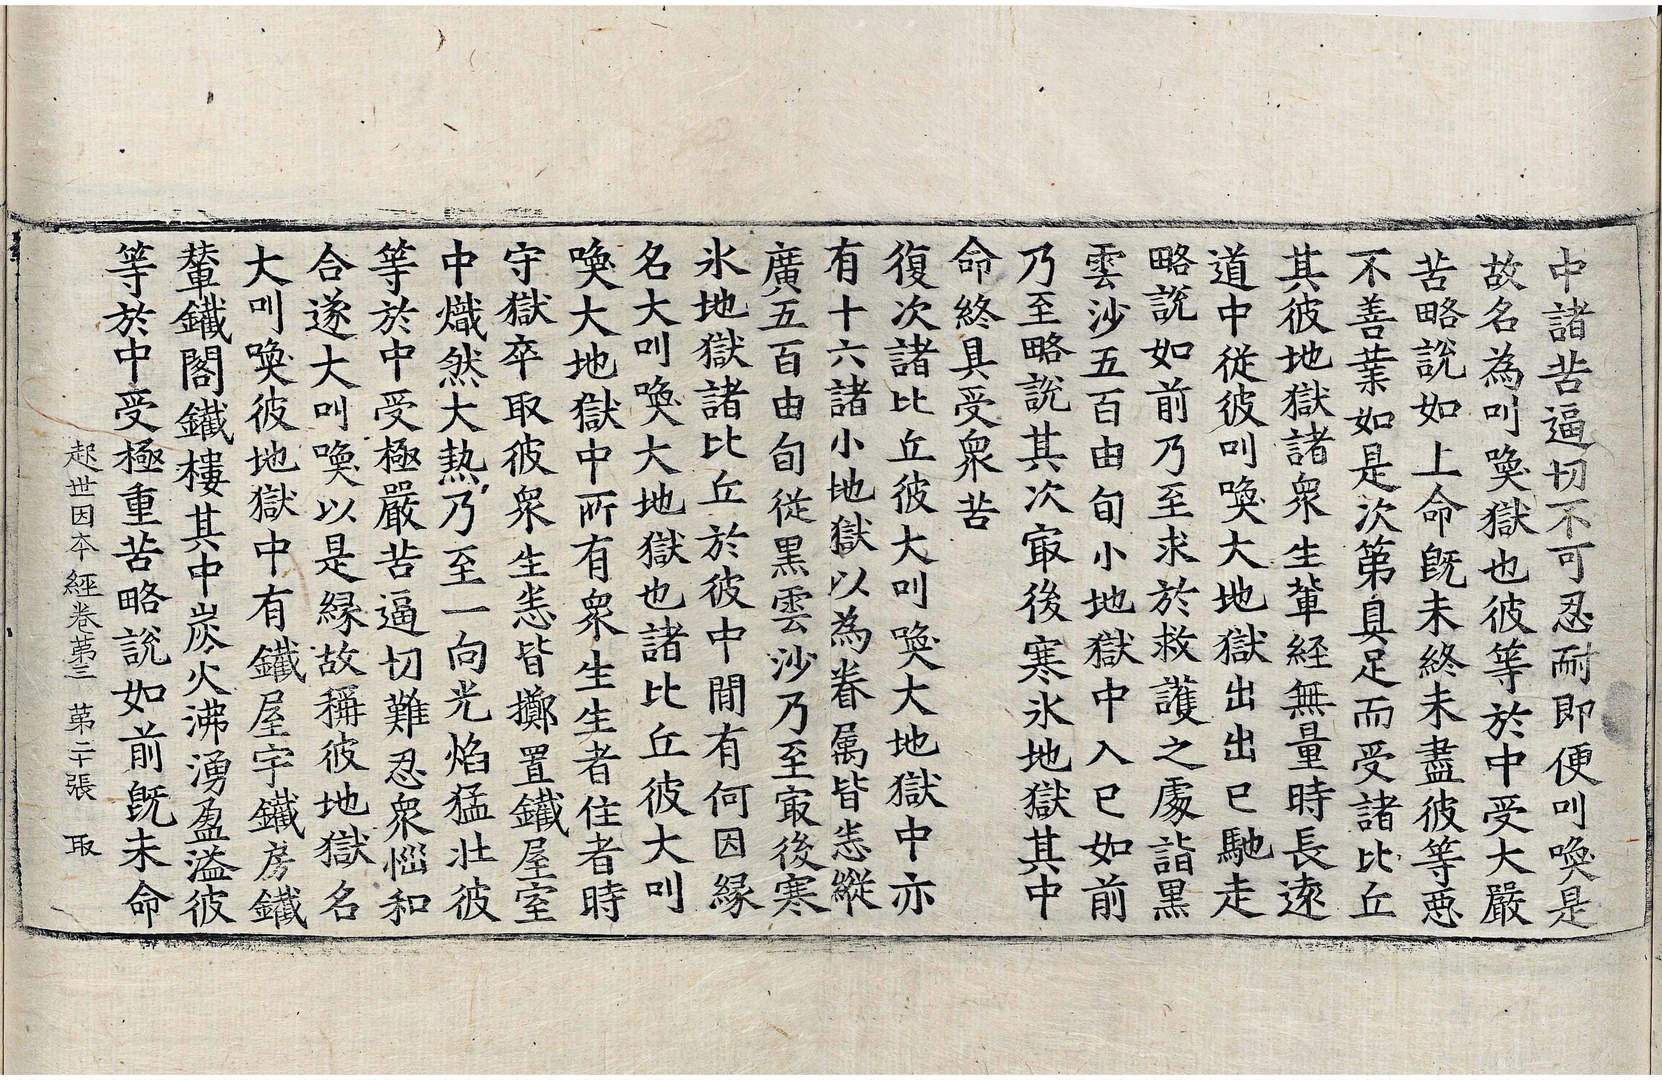 中諸苦逼切不可忍耐即便叫喚是
故名為叫喚獄也彼等於中受大嚴
苦略說如上命旣未終未盡彼等惡
不善業如是次第具足而受諸比丘
其彼地獄諸衆生輩経無量時長遠
道中從彼叫喚大地獄出出已馳走
略說如前乃至求於救護之處詣黑
雲沙五百由旬小地獄中入已如前
乃至略說其次寂後寒氷地獄其中
命終具受衆苦
復次諸比丘彼大叫喚大地獄中亦
有十六諸小地獄以為眷属皆悉縱
廣五百由旬從黑雲沙乃至寂後寒
氷地獄諸比丘於彼中間有何因縁
名大叫喚大地獄也諸比丘彼大叫
喚大地獄中所有衆生生者住者時
守獄卒取彼衆生悉皆擲置鐵屋室
中熾然大熱乃至一向光焰猛壯彼
等於中受極嚴苦逼切難忍衆惱和
合遂大叫喚以是縁故稱彼地獄名
大叫喚彼地獄中有鐵屋宇鐵房鐵
輦鐵閣鐵樓其中炭火沸湧盈溢彼
等於中受極重苦略說如前旣未命
起世因本經卷第三 第二十張 取